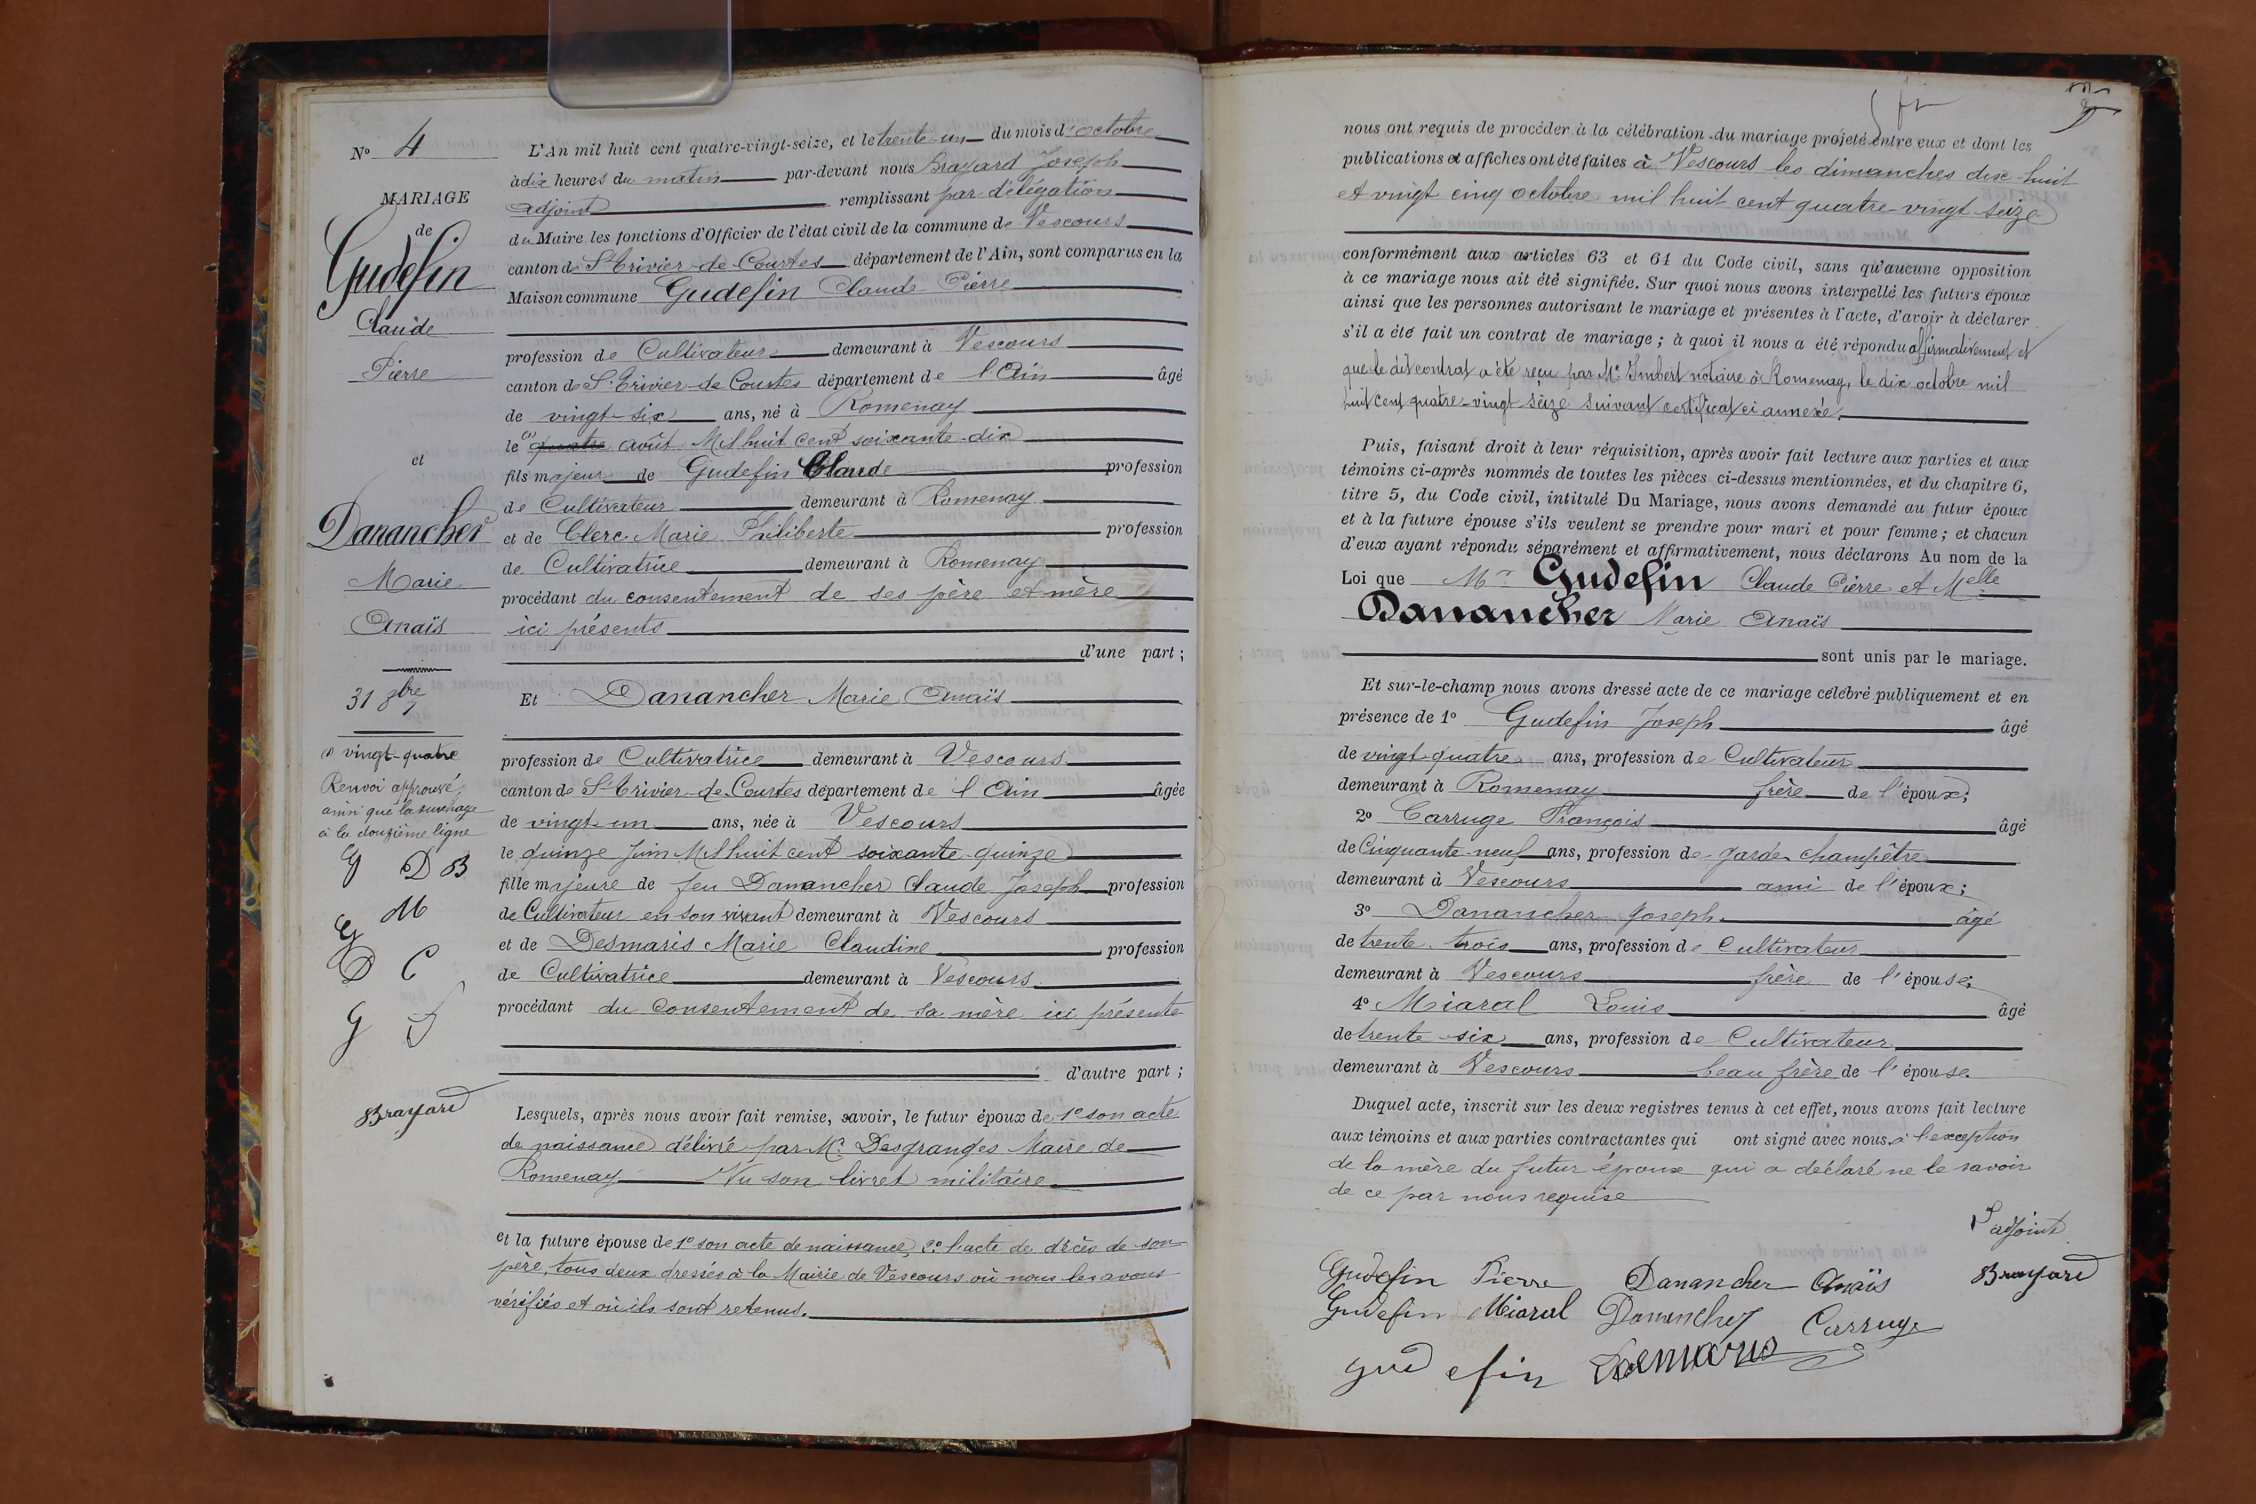 N° 4
MARIAGE
de
Gudefin
Claude
Pierre
et
Danancher
Marie
Anaïs
31 8bre
(1) vingt-quatre
Renvoi approuvé,
ainsi que la surcharge
à la douzième ligne
G D B
M
G
D C
G D
Brayard
L'An mil huit cent quatre-vingt-seize, et le trente-un du mois d'octobre
à dix heures du matin par-devant nous Brayard Joseph
adjoint remplissant par délégation
du Maire les fonctions d'Officier de l'état civil de la commune de Vescours
canton de St Trivier-de-Courtes département de l'Ain, sont comparus en la
Maison commune Gudefin Claude Pierre
profession de Cultivateur demeurant à Vescours
canton de St Trivier-de-Courtes département de l'Ain âgé
de vingt-six ans, né à Romenay
le (1) quatre août Mil huit cent soixante-dix
fils majeur de Gudefin Claude profession
de Cultivateur demeurant à Romenay
et de Clerc Marie Philiberte profession
de Cultivatrice demeurant à Romenay
procédant du consentement de ses père et mère
ici présents
d'une part ;
Et Danancher Marie Anaïs
profession de Cultivatrice demeurant à Vescours
canton de St Trivier-de-Courtes département de l'Ain âgée
de vingt-un ans, née à Vescours
le quinze Juin Mil huit cent soixante-quinze
fille majeure de feu Danancher Claude Joseph profession
de Cultivateur en son vivant demeurant à Vescours
et de Desmaris Marie Claudine profession
de Cultivatrice demeurant à Vescours
procédant du consentement de sa mère ici présente
d'autre part ;
Lesquels, après nous avoir fait remise, savoir, le futur époux de 1° son acte
de naissance délivré par Mr Desgranges Maire de
Romenay Vu son livret militaire
et la future épouse de 1° son acte de naissance, 2° l'acte de décès de son
père, tous deux dressés à la Mairie de Vescours où nous les avons
vérifiés et où ils sont retenus.
nous ont requis de procéder à la célébration du mariage projeté entre eux et dont les
publications et affiches ont été faites à Vescours les dimanches dix-huit
et vingt cinq octobre mil huit cent quatre-vingt seize
conformément aux articles 63 et 64 du Code civil, sans qu'aucune opposition
à ce mariage nous ait été signifiée. Sur quoi nous avons interpellé les futurs époux
ainsi que les personnes autorisant le mariage et présentes à l'acte, d'avoir à déclarer
s'il a été fait un contrat de mariage ; à quoi il nous a été répondu affirmativement et
que le dit contrat a été reçu par Me Imbert notaire à Romenay, le dix octobre mil
huit cent quatre-vingt seize suivant certificat ci annexé.
Puis, faisant droit à leur réquisition, après avoir fait lecture aux parties et aux
témoins ci-après nommés de toutes les pièces ci-dessus mentionnées, et du chapitre 6,
titre 5, du Code civil, intitulé Du Mariage, nous avons demandé au futur époux
et à la future épouse s'ils veulent se prendre pour mari et pour femme ; et chacun
d'eux ayant répondu séparément et affirmativement, nous déclarons Au nom de la
Loi que Mr Gudefin Claude Pierre et Melle
Danancher Marie Anaïs
sont unis par le mariage.
Et sur-le-champ nous avons dressé acte de ce mariage célébré publiquement et en
présence de 1° Gudefin Joseph âgé
de vingt-quatre ans, profession de Cultivateur
demeurant à Romenay frère de l'époux ;
2° Carruge François âgé
de Cinquante-neuf ans, profession de garde champêtre
demeurant à Vescours ami de l'époux ;
3° Danancher Joseph âgé
de trente-trois ans, profession de Cultivateur
demeurant à Vescours frère de l'épouse ;
4° Miaral Louis âgé
de trente-six ans, profession de Cultivateur
demeurant à Vescours beau frère de l'épouse
Duquel acte, inscrit sur les deux registres tenus à cet effet, nous avons fait lecture
aux témoins et aux parties contractantes qui ont signé avec nous à l'exception
de la mère du futur époux qui a déclaré ne le savoir
de ce par nous requise
l'adjoint
Gudefin Pierre Danancher Anaïs Brayard
Gudefin Miaral Danancher Carruge
gudefin Desmaris